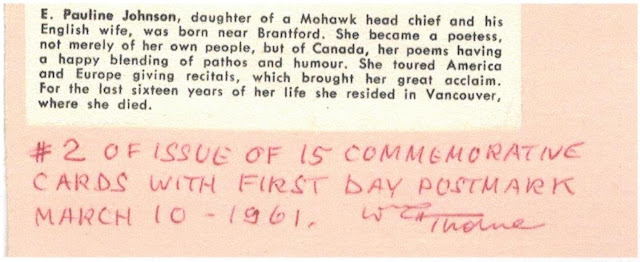 E. Pauline Johnson, daughter of a Mohawk head chief and his
English wife, was born near Brantford. She became a poetess,
not merely of her own people, but of Canada, her poems having
a happy blending of pathos and humour. She toured America
and Europe giving recitals, which brought her great acclaim.
For the last sixteen years of her life she resided in Vancouver,
where she died.
#2 OF ISSUE OF 15 COMMEMORATIVE
CARDS WITH FIRST DAY POSTMARK
MARCH 10 - 1961.